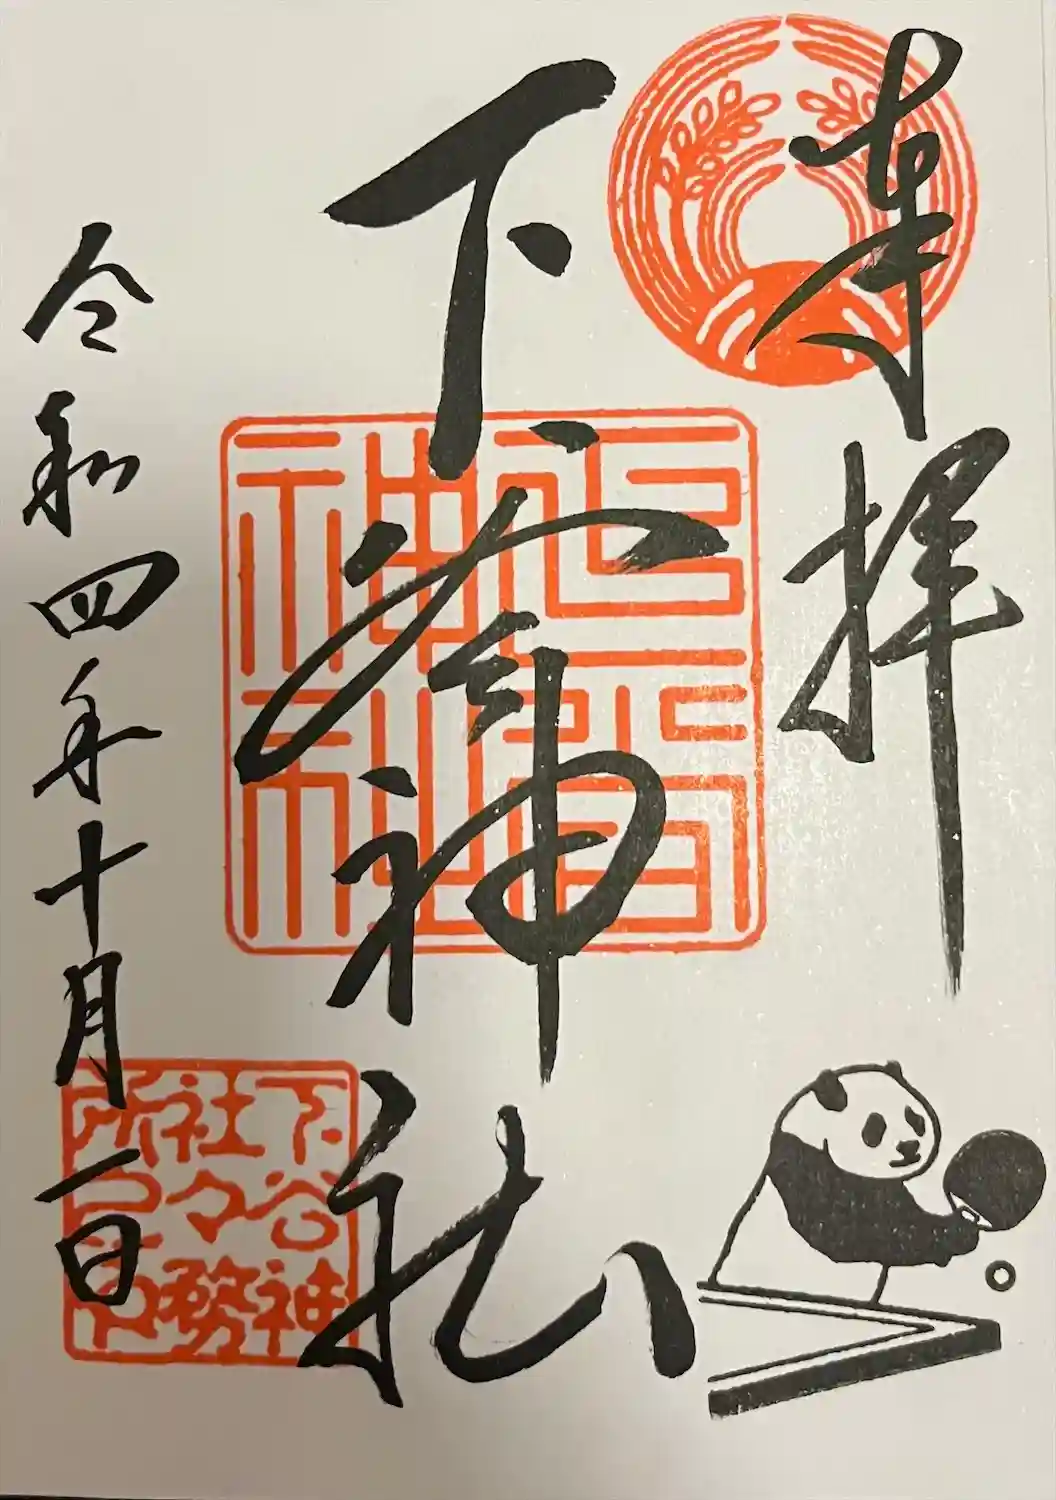 奉拝
下谷神社
令和四年十月一日
下谷神
社々務
所之印